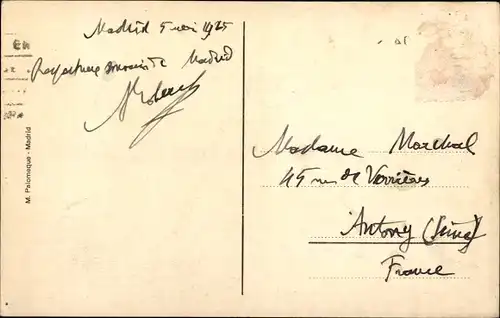 Madrid 5 mai 1925
Madrid
Madame Marchal
45 rue de Verrières
Antony (Seine)
France
M. Palomeque - Madrid